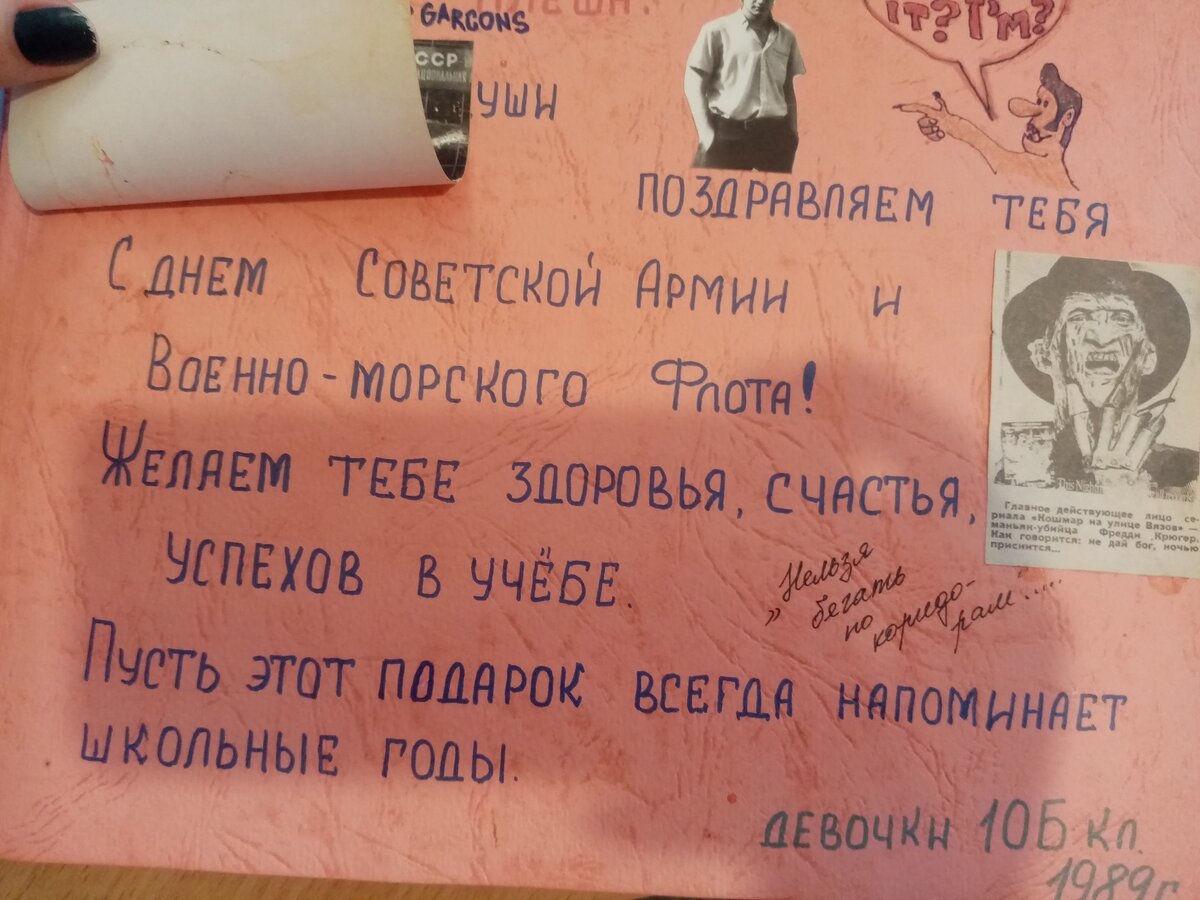 GARCONS
IT? I'M?
ССР
УШИ
ПОЗДРАВЛЯЕМ ТЕБЯ
С ДНЕМ СОВЕТСКОЙ АРМИИ И
ВОЕННО-МОРСКОГО ФЛОТА!
ЖЕЛАЕМ ТЕБЕ ЗДОРОВЬЯ, СЧАСТЬЯ,
УСПЕХОВ В УЧЁБЕ.
Главное действующее лицо се-
риала «Кошмар на улице Вязов» —
маньяк-убийца Фредди Крюгер.
Как говорится: не дай бог, ночью
приснится...
„Нельзя
бегать
по
коридо-
рам".....
ПУСТЬ ЭТОТ ПОДАРОК ВСЕГДА НАПОМИНАЕТ
ШКОЛЬНЫЕ ГОДЫ.
ДЕВОЧКИ 10Б КЛ.
1989г